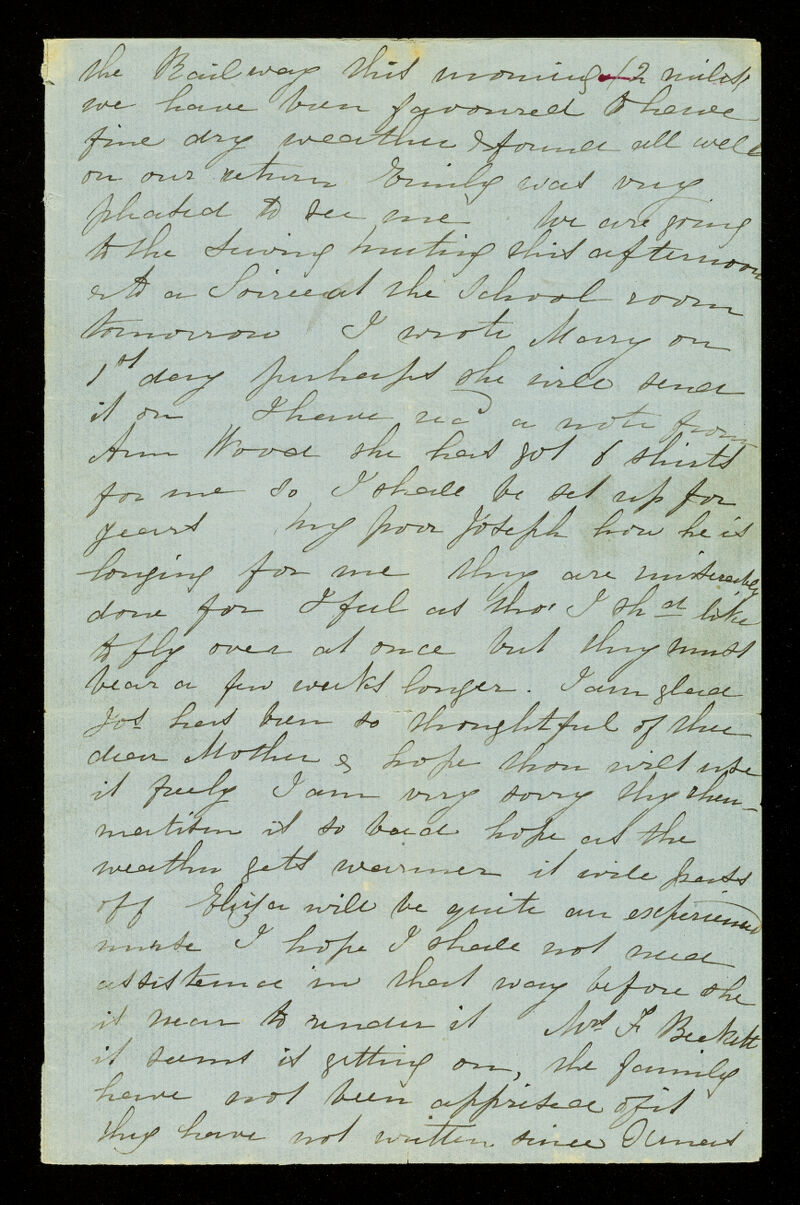 the Railway this morning 12 miles
we have been favoured to have
fine dry weather & found all well
on our return Emily was very
pleased to see me We are going
to the Sewing Meeting this afternoon
& to a Soiree at the School room
tomorrow I wrote Mary on
1st day perhaps she will send
it on I have recd a note from
Ann Wood she has got 6 shirts
for me so I shall be set up for
years My poor Joseph how he is
longing for me they are miserably
done for I feel as tho' I shd like
to fly over at once but they must
bear a few weeks longer. I am glad
Jos has been so thoughtful of thee
dear Mother & hope thou will use
it freely I am very sorry thy rheu-
matism is so bad hope as the
weather gets warmer it will pass
off Eliza will be quite an experienced
nurse I hope I shall not need
assistance in that way before she
is near to render it Mrs F Beckett
it seems is getting on, the family
have not been apprised of it
they have not written since I was